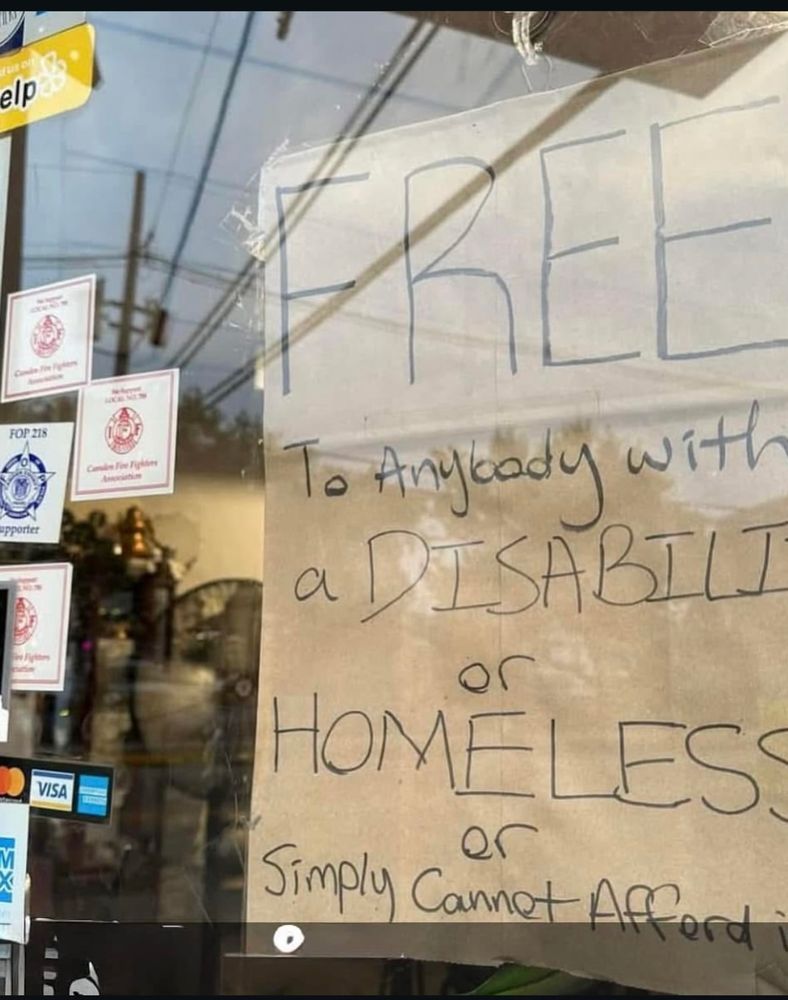 elp
We Support
LOCAL NO. 788
Camden Fire Fighters
Association
We Support
LOCAL NO. 788
Camden Fire Fighters
Association
FOP 218
upporter
Fighters
VISA
FREE
To Anybody with
a DISABILI
or
HOMELESS
or
Simply Cannot Afford i